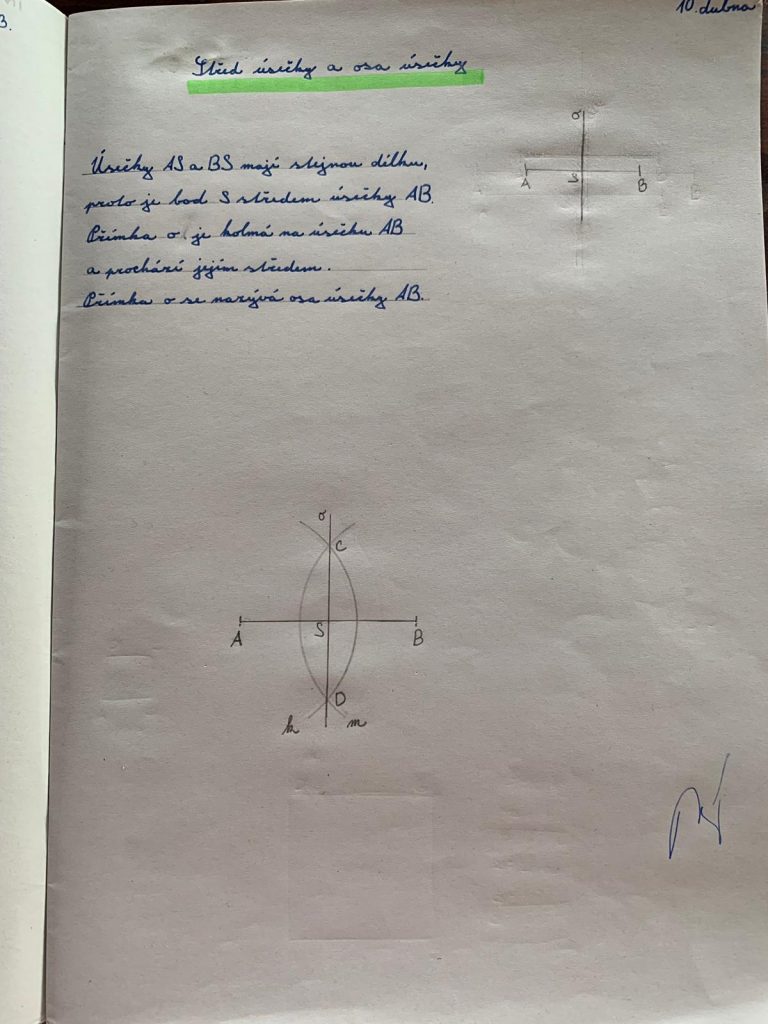 3.
10. dubna
Střed úsečky a osa úsečky
Úsečky AS a BS mají stejnou délku,
proto je bod S středem úsečky AB.
Přímka o je kolmá na úsečku AB
a prochází jejím středem.
Přímka o se nazývá osa úsečky AB.
o
A S B
o
C
A S B
D
k m